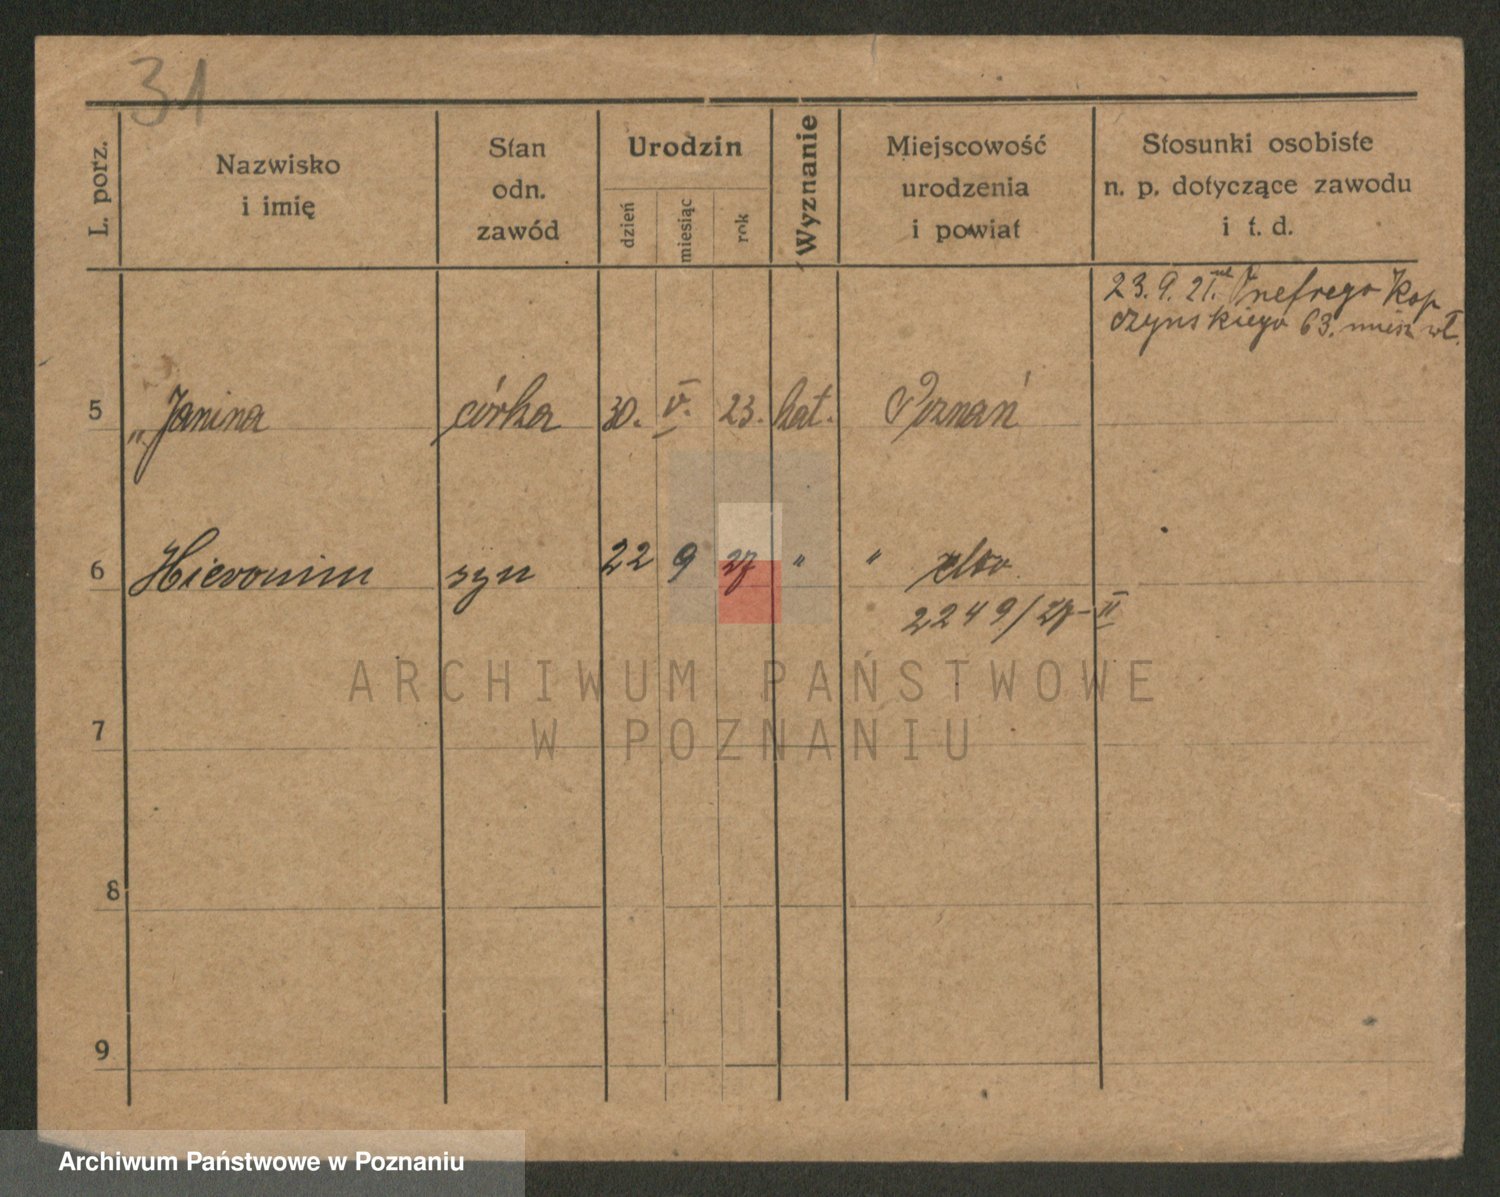 31
L. porz.
Nazwisko
i imię
Stan
odn.
zawód
Urodzin
dzień
miesiąc
rok
Wyznanie
Miejscowość
urodzenia
i powiat
Stosunki osobiste
n. p. dotyczące zawodu
i t. d.
23. 9. 27. Kop
czynskiego 63.
5 „ Janina córka 30. V. 23. kat. Poznań
6 Hieronim syn 22 9 27 " "
2249/27-II
7
8
9
ARCHIWUM PAŃSTWOWE
W POZNANIU
Archiwum Państwowe w Poznaniu